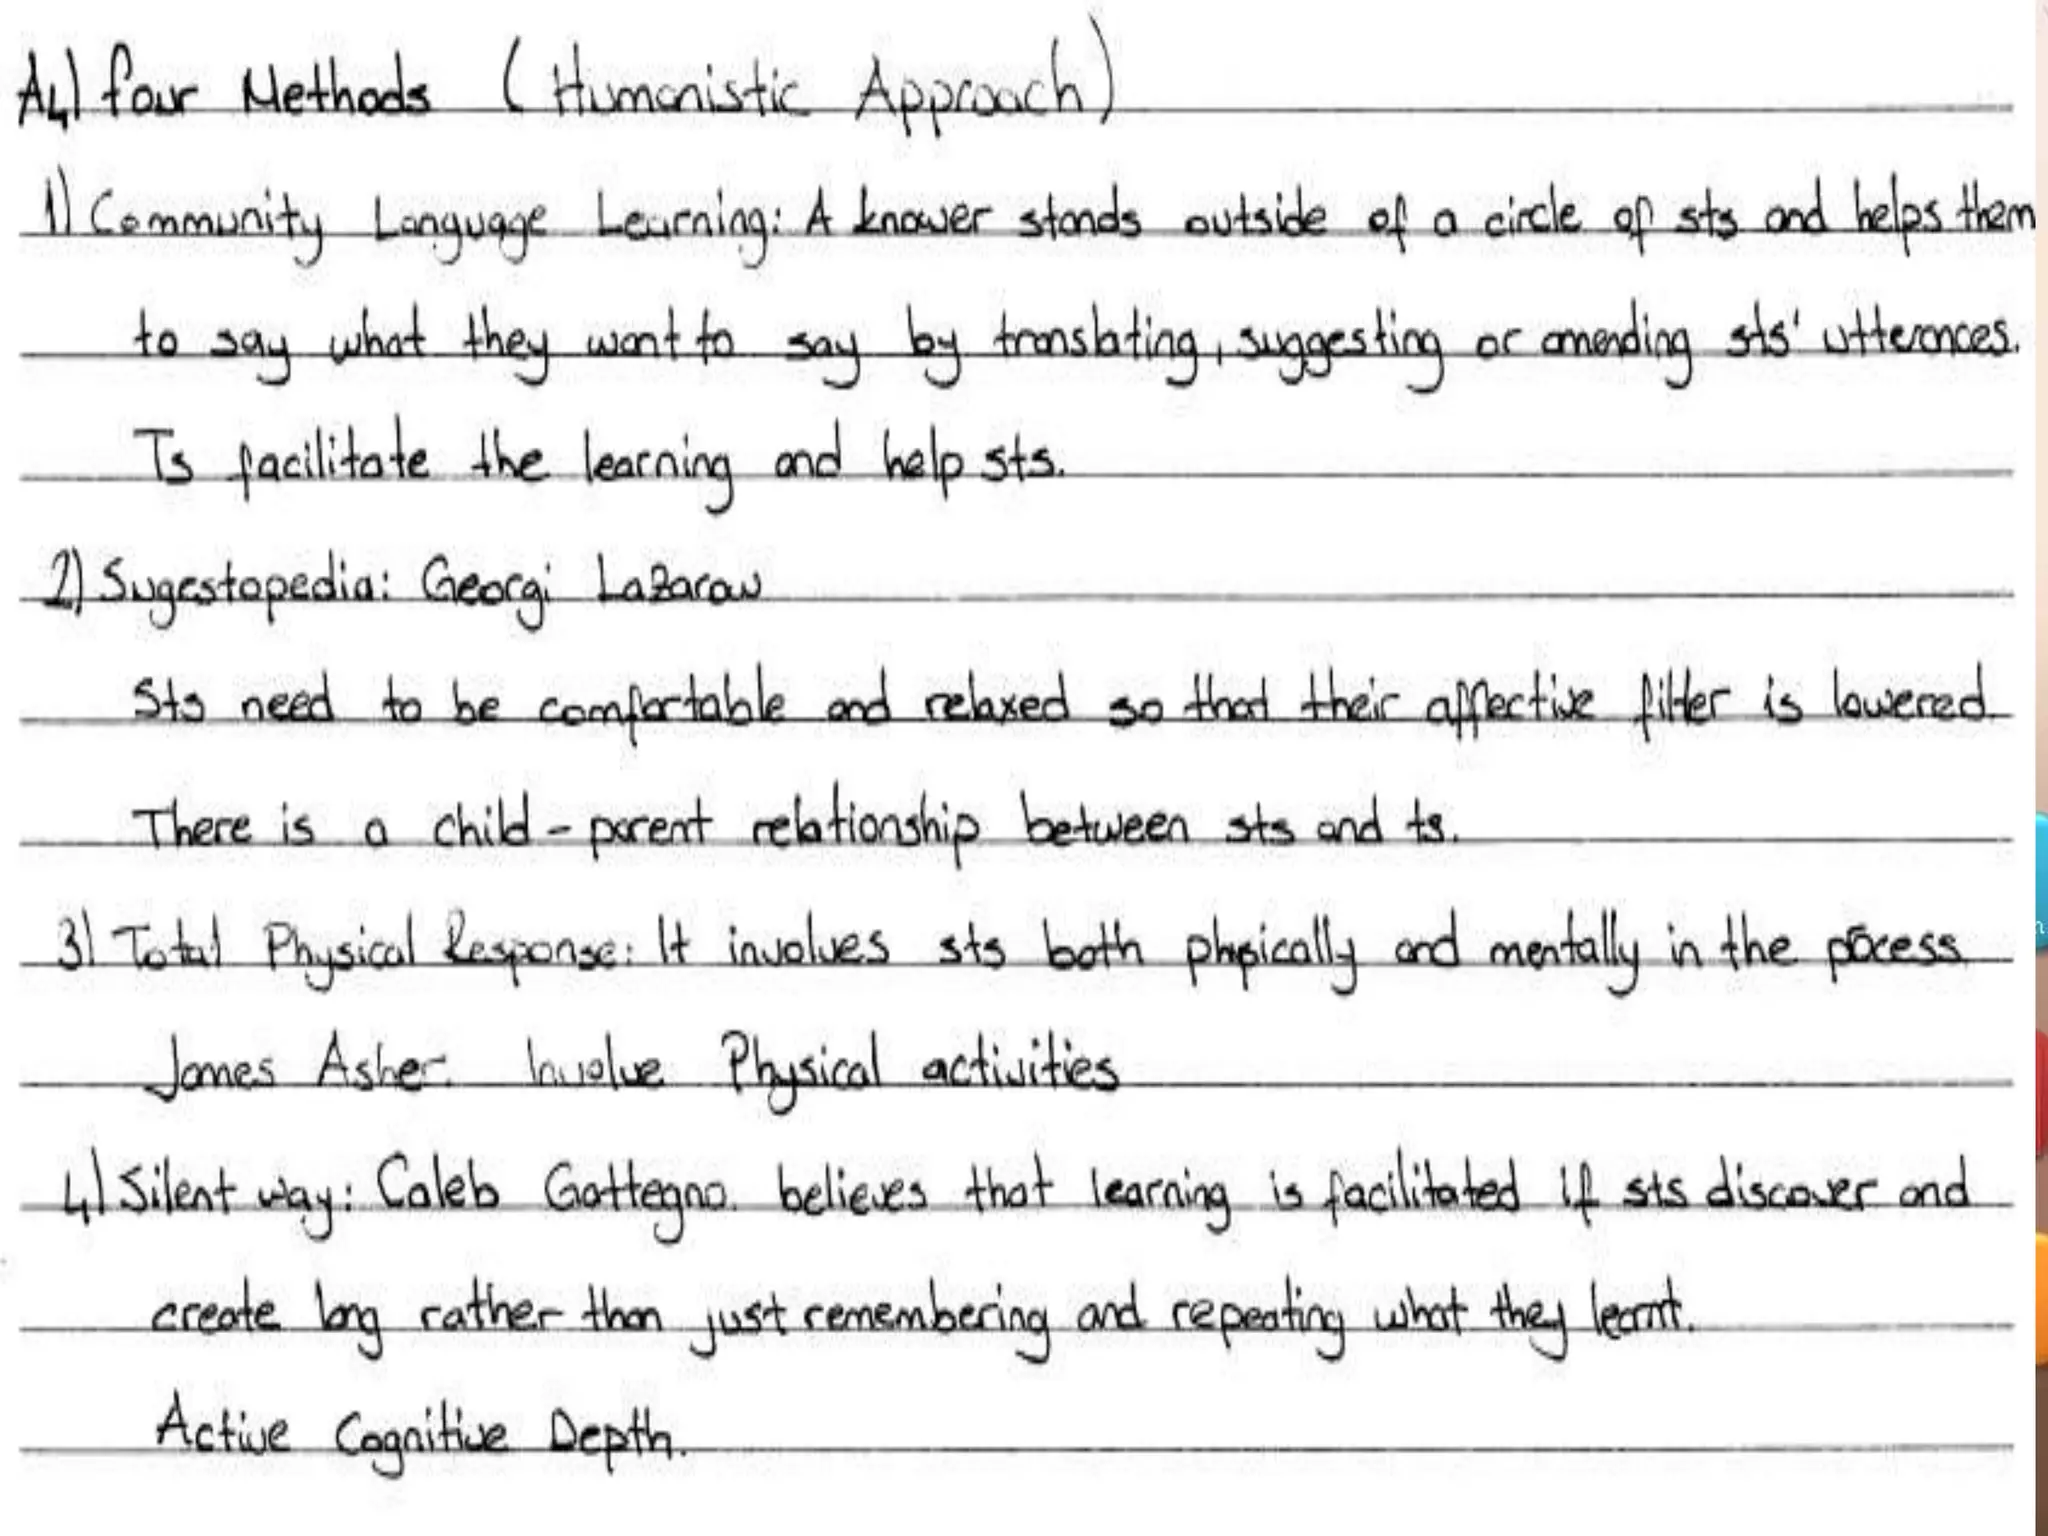 A4) four Methods (Humanistic Approach)
1) Community Language Learning: A knower stands outside of a circle of sts and helps them
to say what they want to say by translating, suggesting or amending sts' utterances.
Ts facilitate the learning and help sts.
2) Sugestopedia: Georgi Lazarow
Sts need to be comfortable and relaxed so that their affective filter is lowered.
There is a child-parent relationship between sts and ts.
3) Total Physical Response: It involves sts both physically and mentally in the pocess.
James Asher. Involve Physical activities
4) Silent way: Caleb Gattegno. believes that learning is facilitated if sts discover and
create lang rather than just remembering and repeating what they learnt.
Active Cognitive Depth.